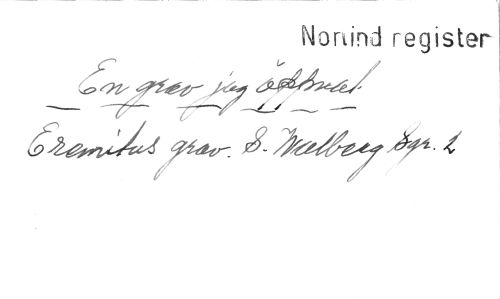 Norlind register
En grav jag öppnat.
Eremitus grav. S. Wallberg Sgr. 2